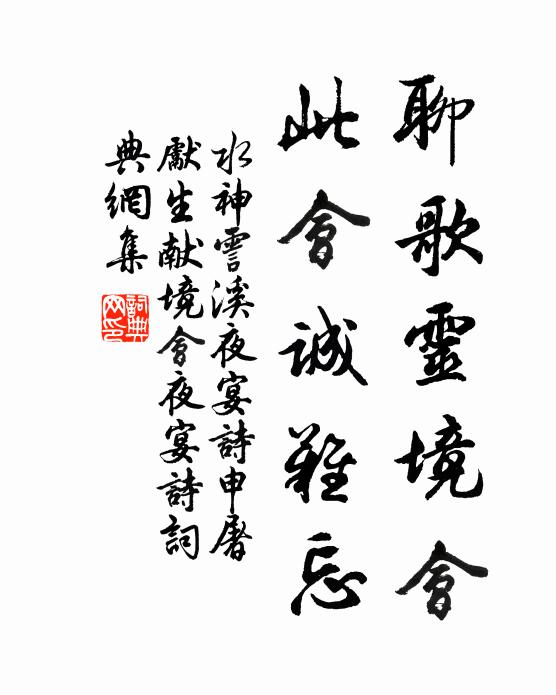 聊歌靈境會
此會誠難忘
水神霅溪夜宴詩申屠
獻生献境會夜宴詩詞
典網集
詞典網印